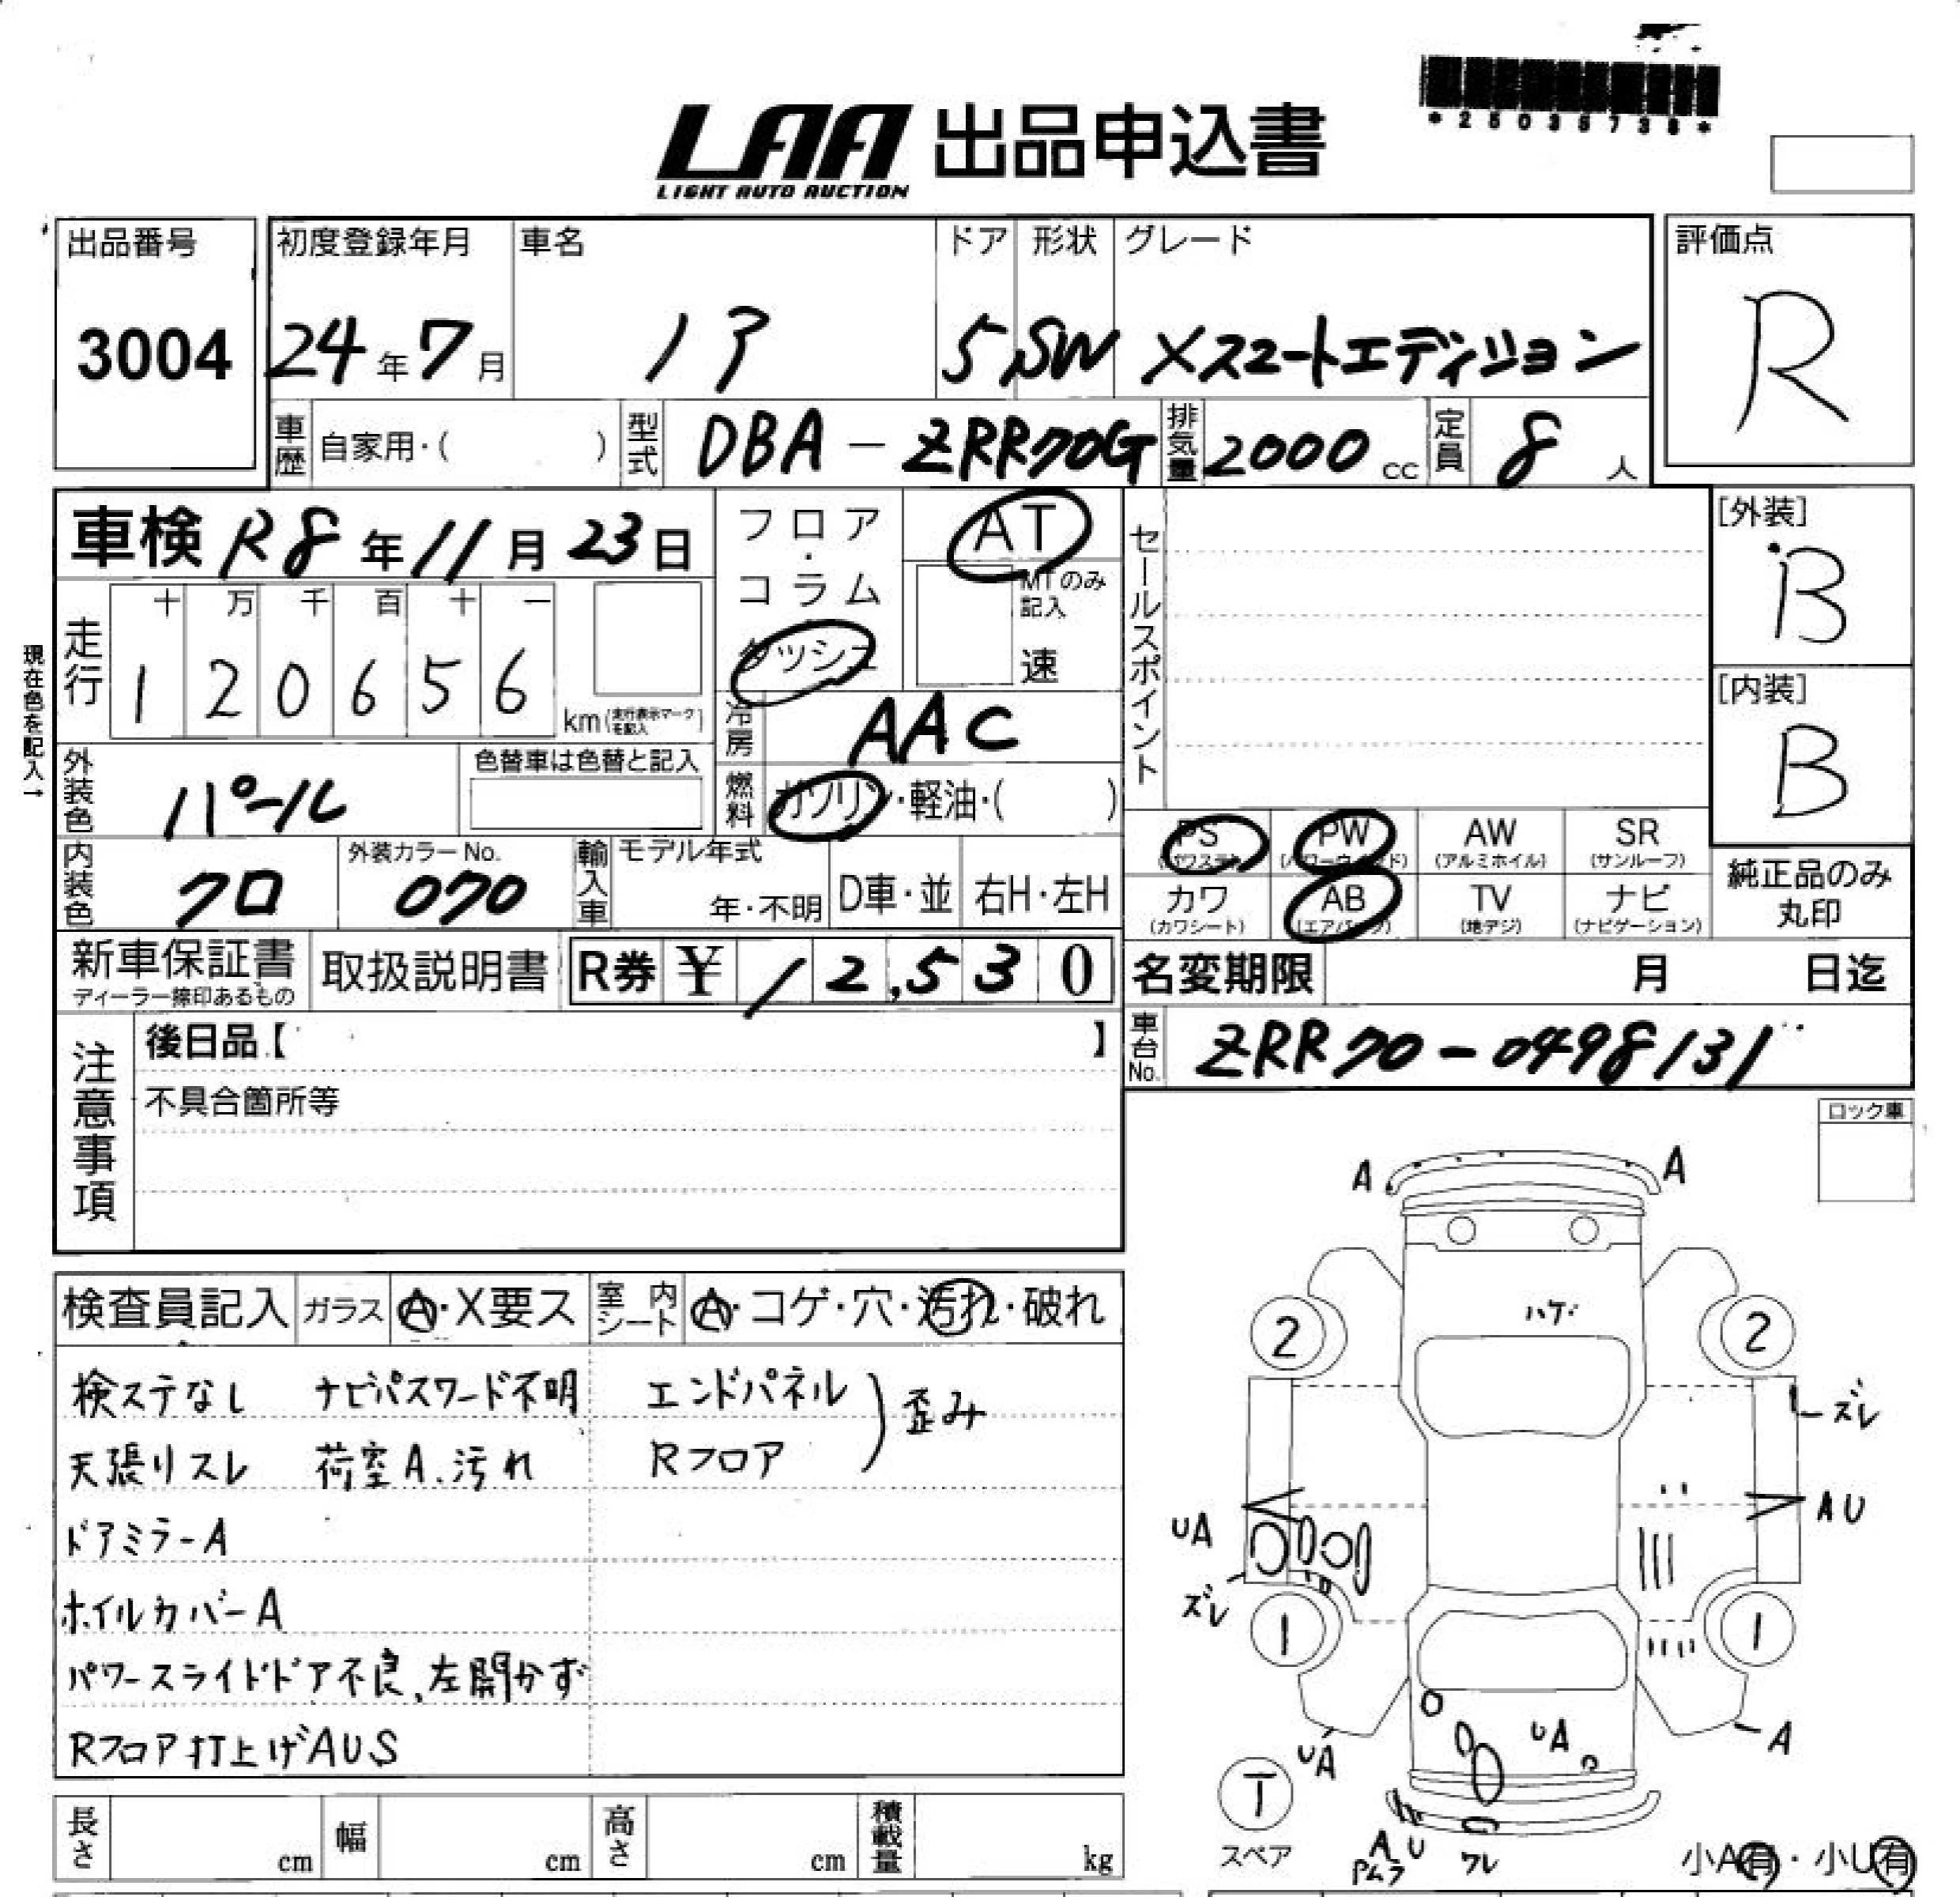 *25035738*
LAA 出品申込書
LIGHT AUTO AUCTION
出品番号 初度登録年月 車名 ドア 形状 グレード 評価点
3004 24年7月 ノア 5 SW Xスマートエディション R
車歴 自家用・( ) 型式 DBA-ZRR70G 排気量 2000 cc 定員 8 人
車検 R8年11月23日 フロア・コラム・ダッシュ AT セールスポイント [外装] B
MTのみ記入 速
現在色を記入→
走行 十 万 千 百 十 一
1 2 0 6 5 6 km (走行表示マークを記入) [内装] B
冷房 AAC
外装色 パール 色替車は色替と記入 燃料 ガソリン・軽油・( )
PS (パワステ) PW (パワーウインド) AW (アルミホイル) SR (サンルーフ)
内装色 クロ 外装カラーNo. 070 輸入車 モデル年式 年・不明 D車・並 右H・左H
カワ (カワシート) AB (エアバッグ) TV (地デジ) ナビ (ナビゲーション) 純正品のみ丸印
新車保証書 ディーラー捺印あるもの 取扱説明書 R券 ¥12,530 名変期限 月 日迄
注意事項 後日品【 】 車台No. ZRR70-0498131
不具合箇所等
ロック車
A A
検査員記入 ガラス A・X要ス 室内シート A・コゲ・穴・汚れ・破れ
ハゲ
2 2
検ステなし ナビパスワード不明 エンドパネル 歪み
ズレ
天張リスレ 荷室A、汚れ Rフロア
AU
UA
ドアミラーA
ズレ
ホイルカバーA
1 1
パワースライドドア不良、左開かず
Rフロア打上げAUS
UA UA A
T
スペア
A U
Pムラ ワレ
小A有・小U有
長さ cm 幅 cm 高さ cm 積載量 kg